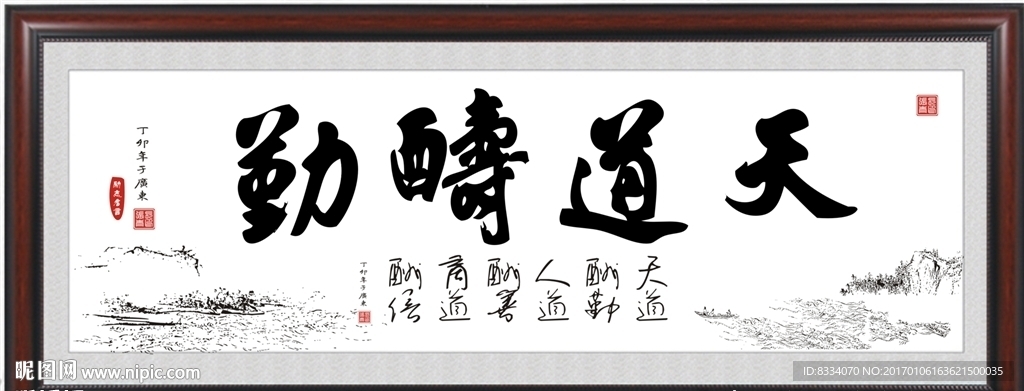 天道醻勤
丁卯年于廣東
天道
酬勤
人道
酬善
商道
酬信
丁卯年于廣東
昵图网 www.nipic.com
ID:8334070 NO:20170106163621500035